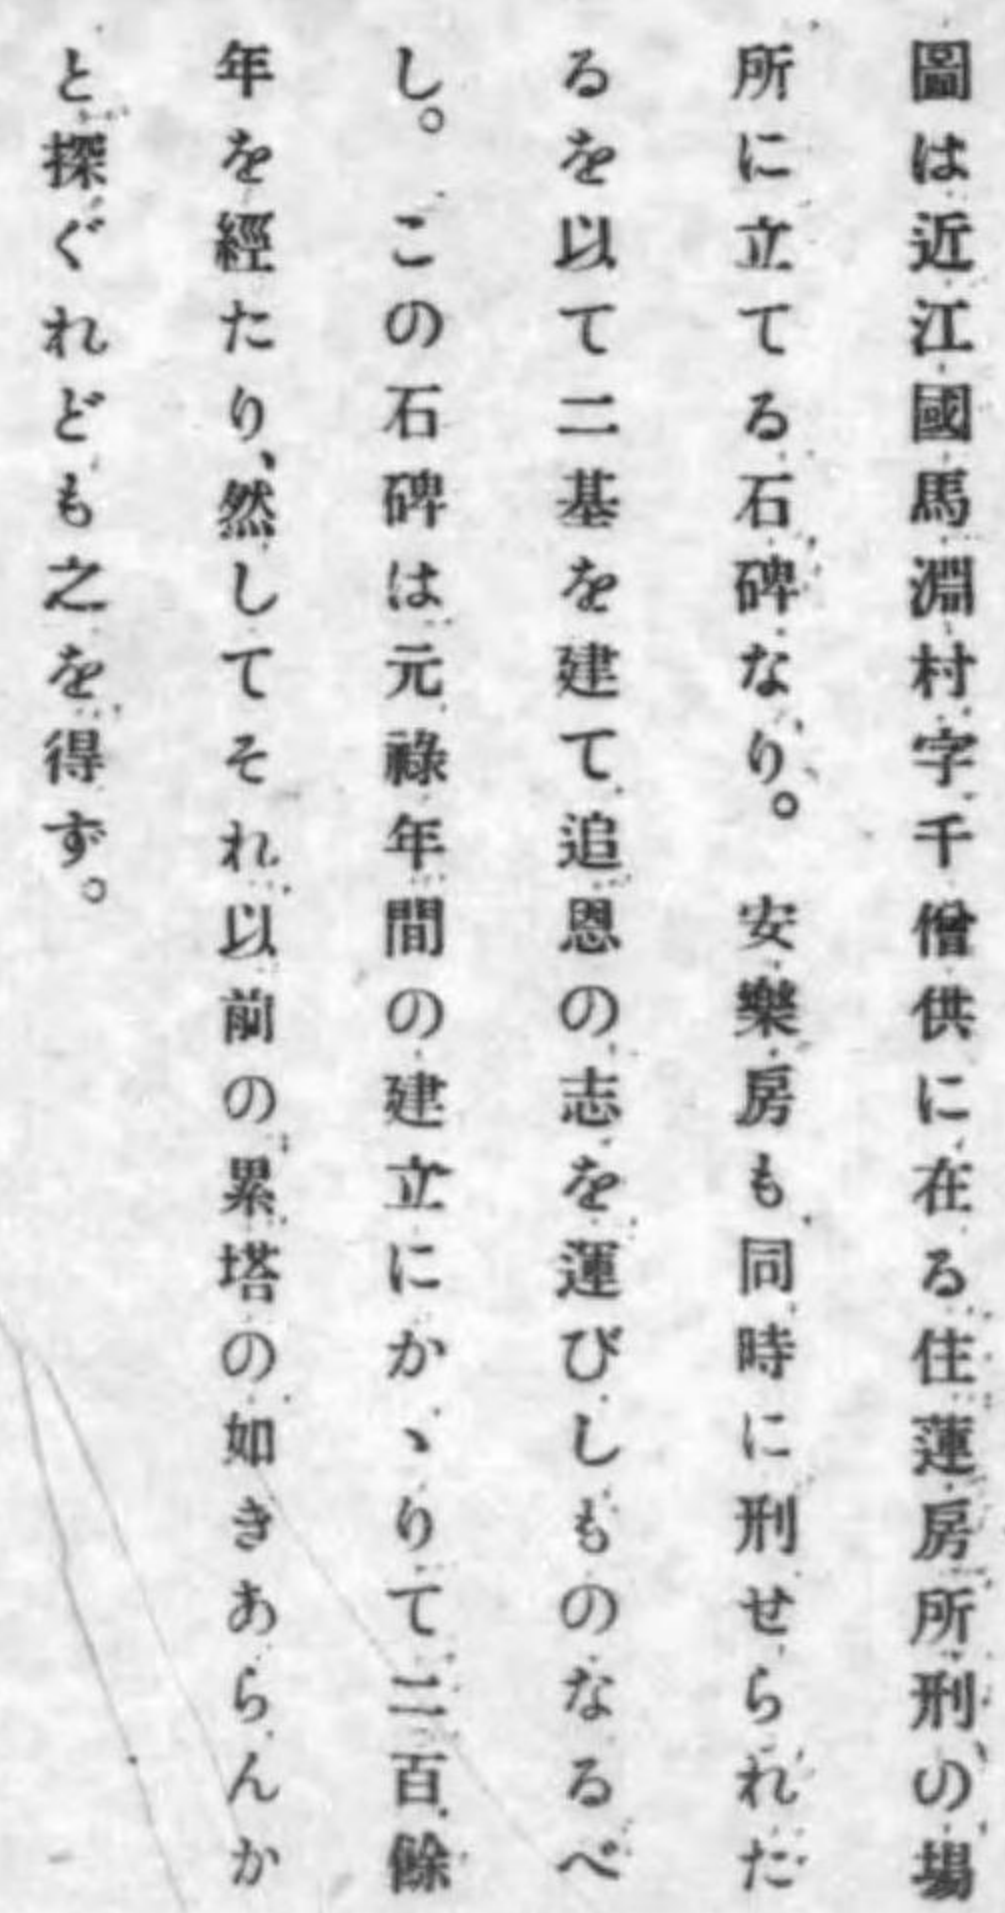 圖は近江國馬淵村字千僧供に在る住蓮房所刑の場
所に立てる石碑なり。　安樂房も同時に刑せられた
るを以て二基を建て追恩の志を運びしものなるべ
し。　この石碑は元祿年間の建立にかゝりて二百餘
年を經たり、然してそれ以前の累塔の如きあらんか
と探ぐれども之を得ず。